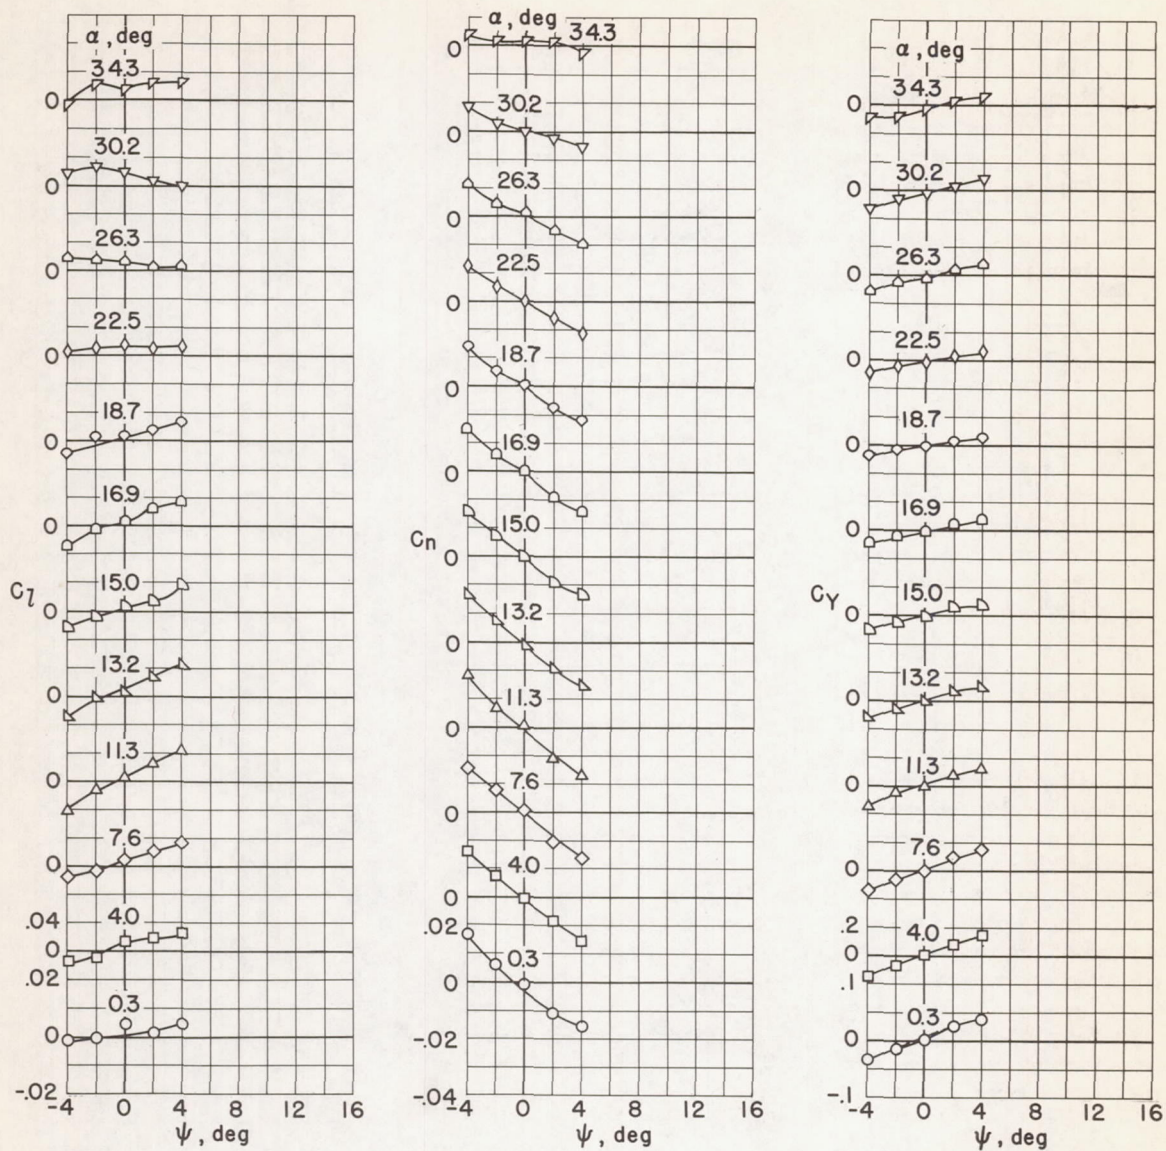 α, deg
34.3
0
30.2
0
26.3
0
22.5
0
18.7
0
16.9
0
15.0
C_l
0
13.2
0
11.3
0
7.6
0
.04
4.0
0
.02
0.3
0
-.02
-4 0 4 8 12 16
ψ, deg
α, deg
34.3
0
30.2
0
26.3
0
22.5
0
18.7
0
16.9
0
C_n
15.0
0
13.2
0
11.3
0
7.6
0
4.0
0
.02
0.3
0
-.02
-.04
-4 0 4 8 12 16
ψ, deg
α, deg
34.3
0
30.2
0
26.3
0
22.5
0
18.7
0
16.9
0
15.0
C_Y
0
13.2
0
11.3
0
7.6
0
.2
4.0
0
.1
0.3
0
-.1
-4 0 4 8 12 16
ψ, deg